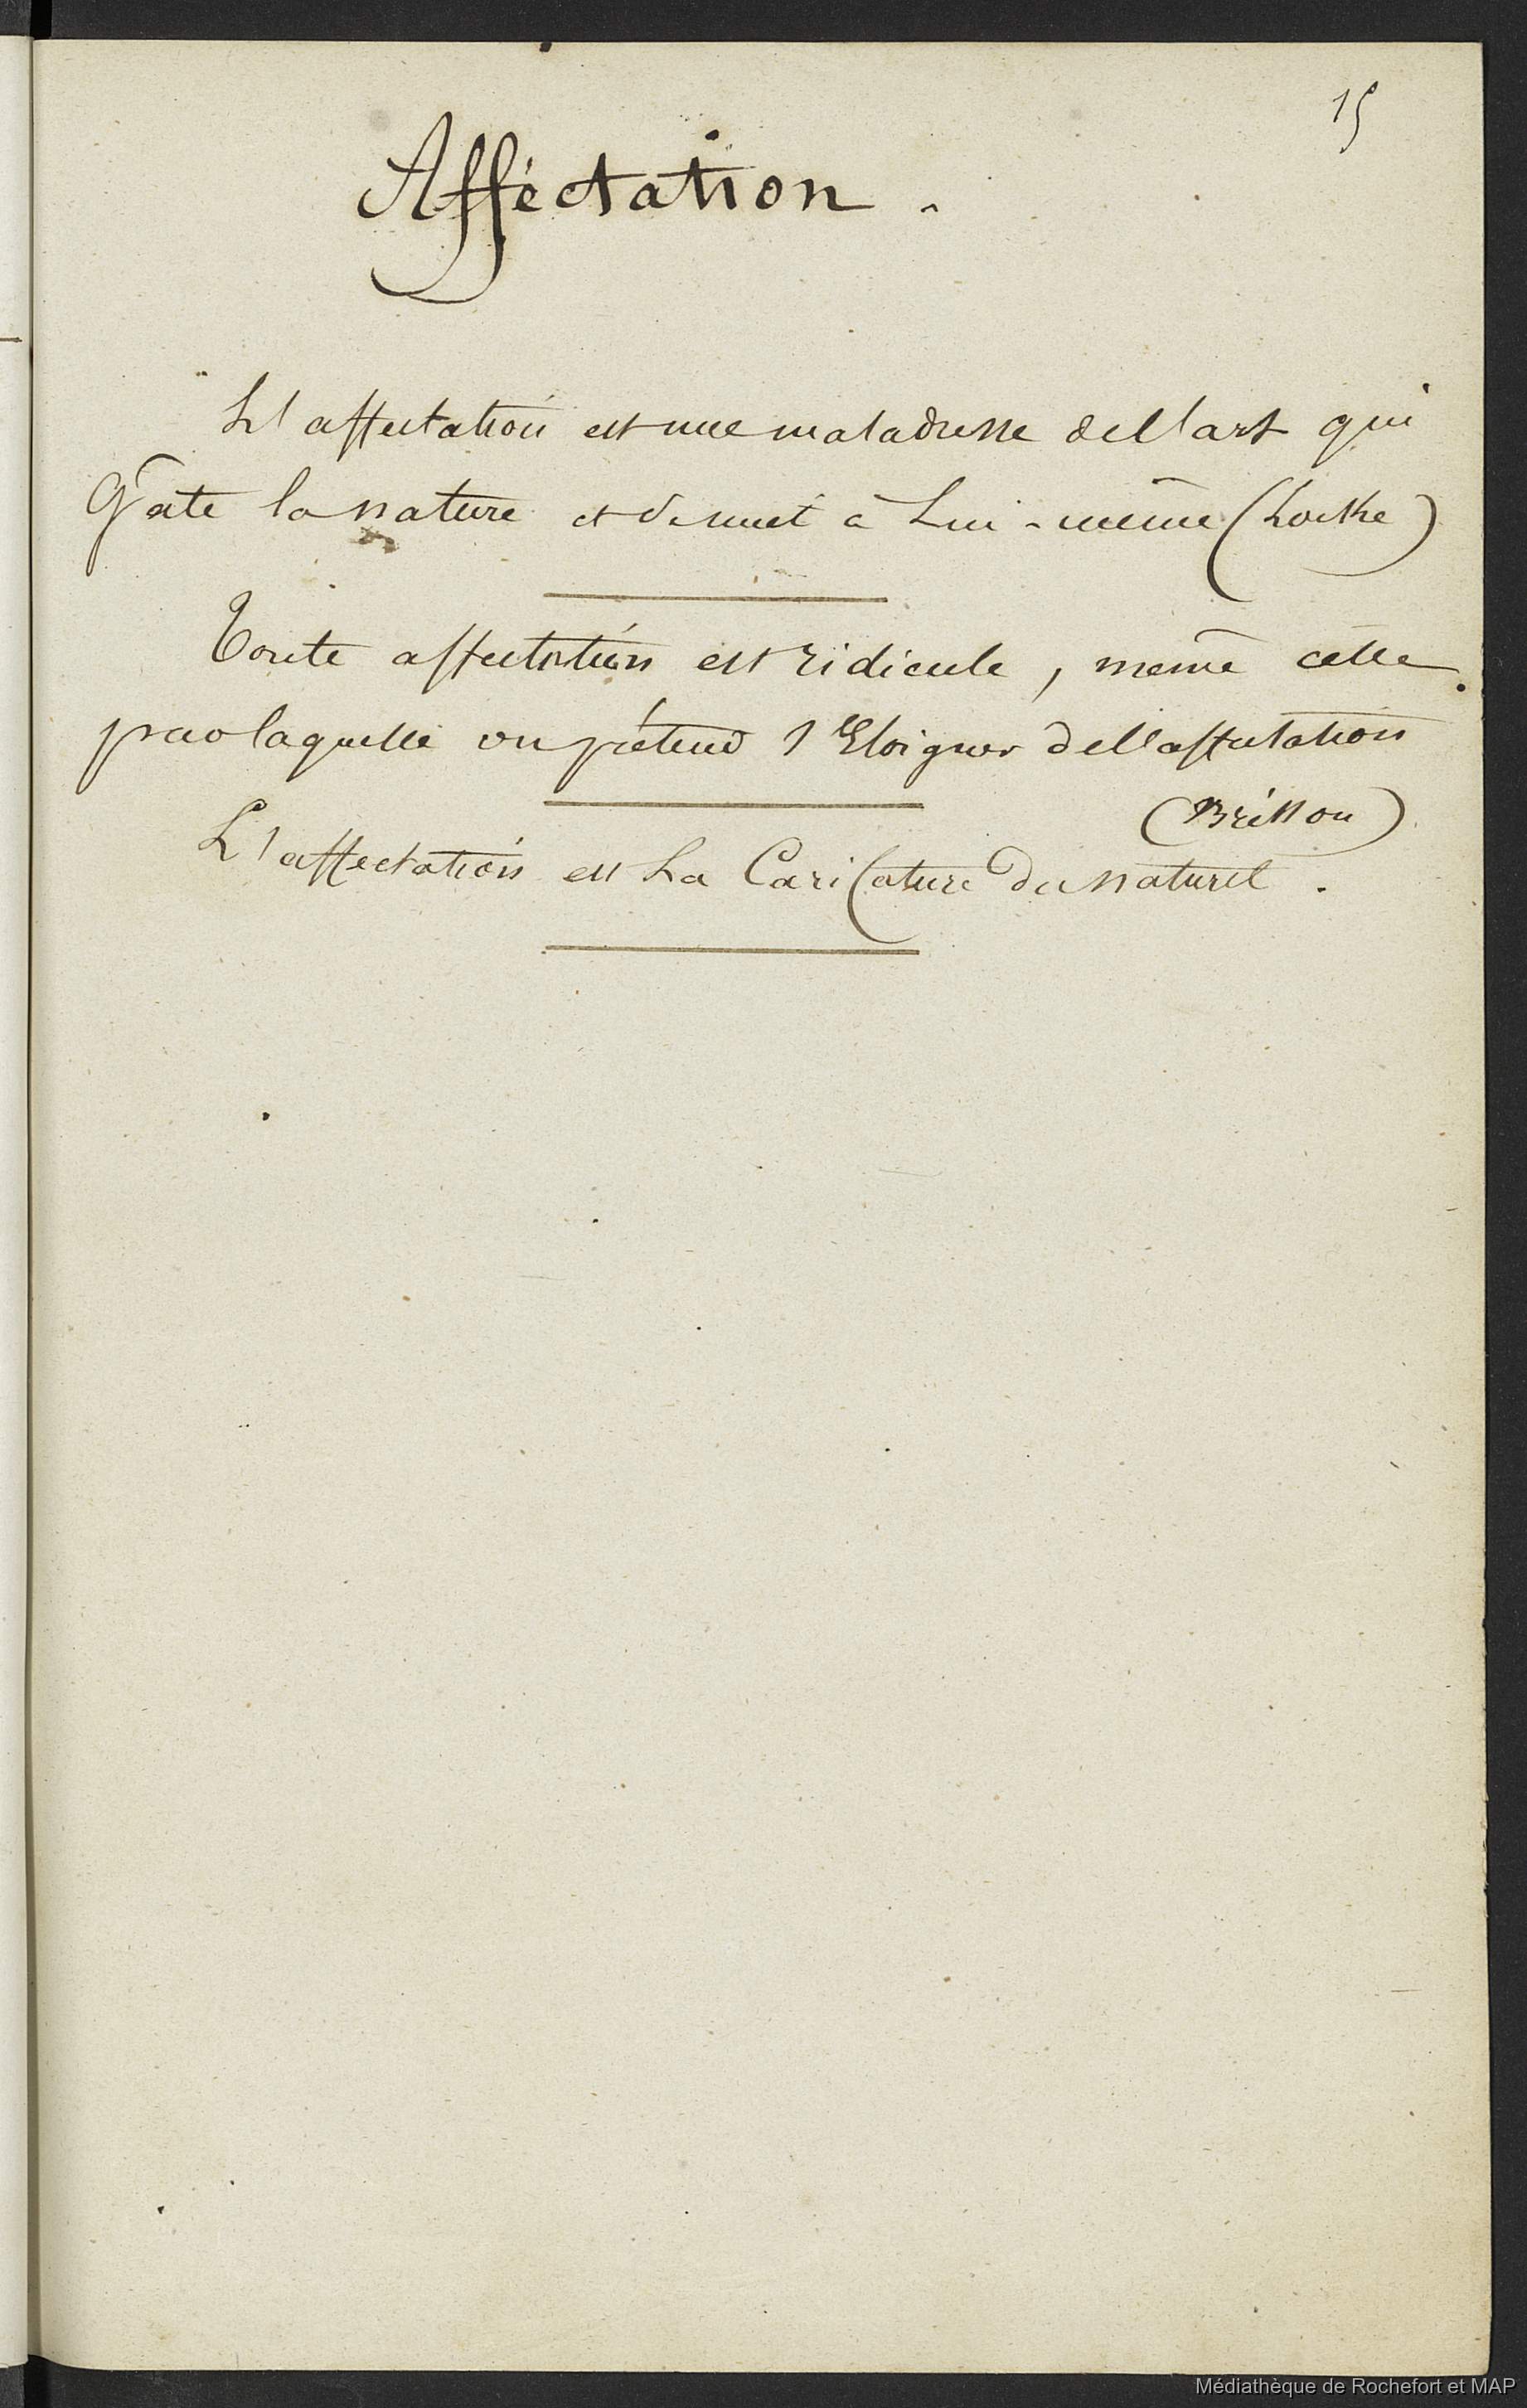 15
Affectation.
L'affectation est une maladresse de l'art qui
Gâte la nature et se nuit à Lui-même (Locke)
Toute affectation est ridicule, même celle
par laquelle on prétend s'Eloigner de l'affectation
(Brisson)
L'affectation est La Caricature du naturel.
Médiathèque de Rochefort et MAP